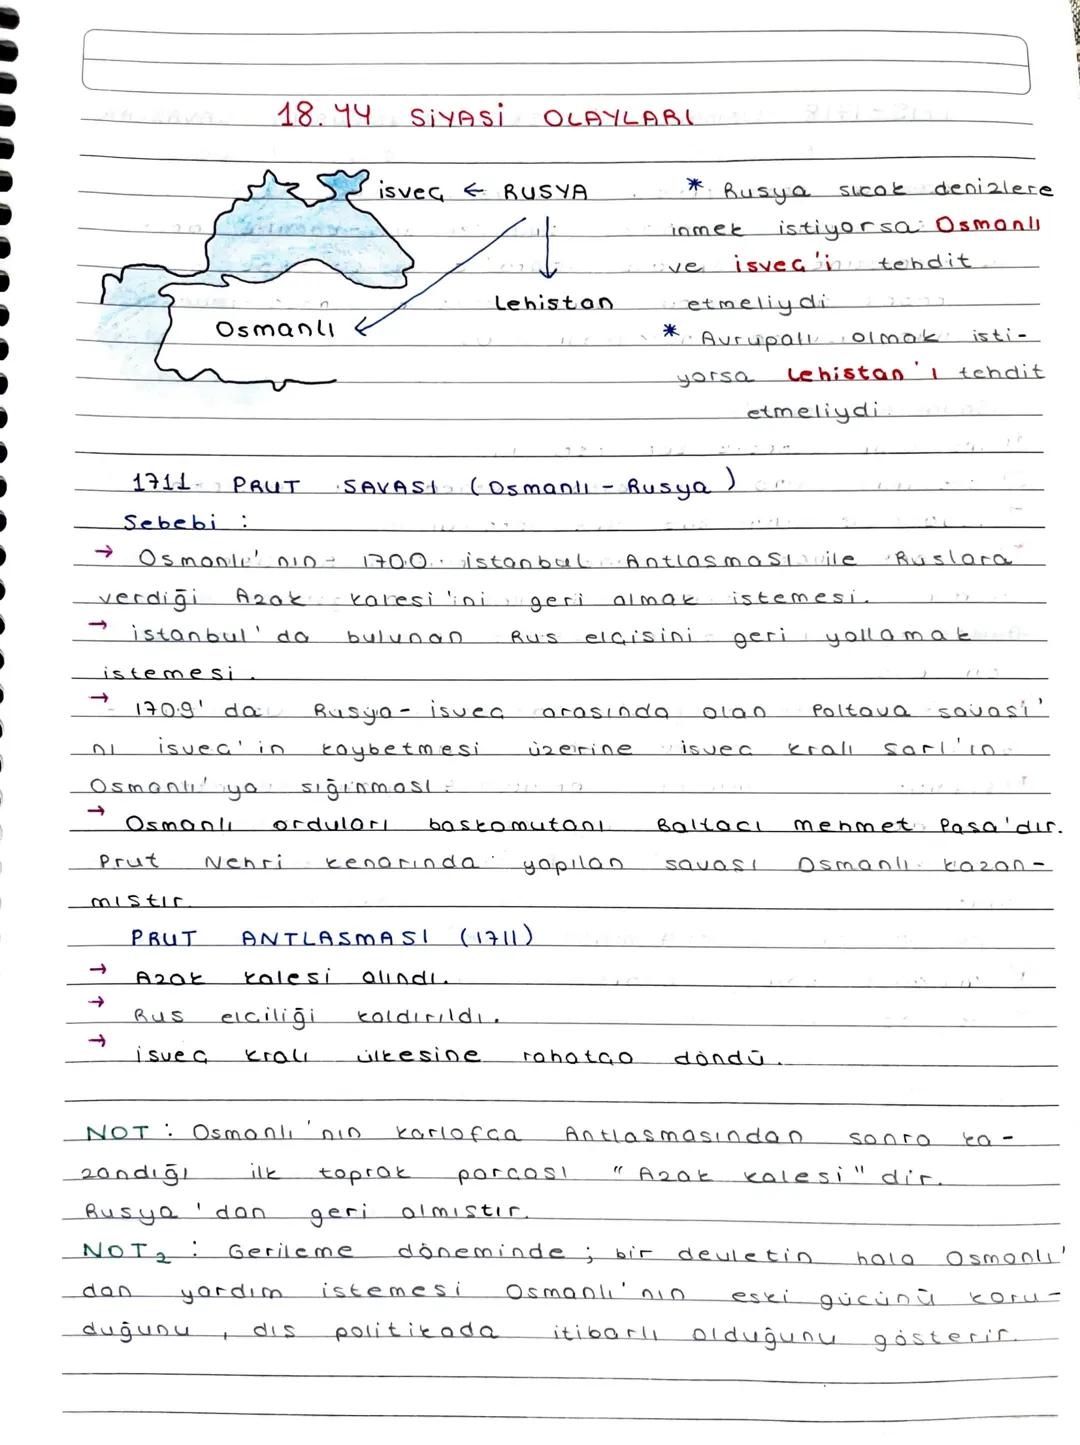 18.YY SİYASİ OLAYLARI
isveç ← RUSYA
Lehistan
Osmanlı
* Rusya sıcak denizlere
inmek istiyorsa Osmanlı
ve isveç'i tehdit
etmeliydi
* Avrupalı olmak isti-
yorsa Lehistan'ı tehdit
etmeliydi.
1711 PRUT SAVASI (Osmanlı - Rusya)
Sebebi :
→ Osmanlı'nın 1700 istanbul Antlasması ile Ruslara
verdiği Azak kalesi'ini geri almak istemesi.
→ istanbul'da bulunan Rus elçisini geri yollamak
istemesi.
→ 1709'da Rusya - isveç arasında olan Poltava savası'
nı isvec'in kaybetmesi üzerine isvec kralı Sarl'ın
Osmanlı'ya sığınması.
→ Osmanlı orduları baskomutanı Baltacı mehmet Pasa'dır.
Prut Nehri kenarında yapılan savası Osmanlı kazan-
mıstır.
PRUT ANTLASMASI (1711)
→ Azak kalesi alındı.
→ Rus elciliği kaldırıldı.
→ isveç kralı ülkesine rahatça döndü.
NOT : Osmanlı'nın karlofça Antlasmasından sonra ka-
zandığı ilk toprak parçası "Azak kalesi" dir.
Rusya'dan geri almıstır.
NOT2 : Gerileme döneminde ; bir devletin hala Osmanlı'
dan yardım istemesi Osmanlı'nın eski gücünü koru-
duğunu, dıs politikada itibarlı olduğunu gösterir.